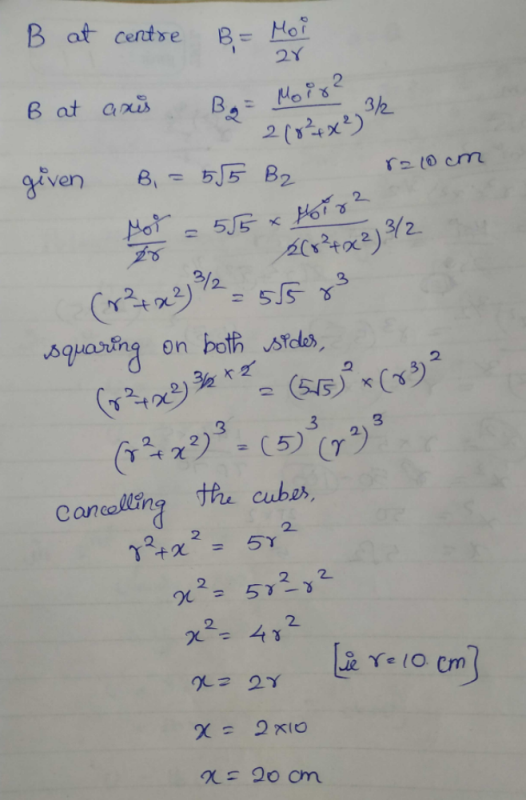 B at centre B₁ = μ₀i / 2r
B at axis B₂ = μ₀ir² / 2(r²+x²)^3/2
given B₁ = 5√5 B₂ r = 10 cm
μ₀i / 2r = 5√5 × μ₀ir² / 2(r²+x²)^3/2
(r²+x²)^3/2 = 5√5 r³
squaring on both sides,
(r²+x²)^3/2 × 2 = (5√5)² × (r³)²
(r²+x²)³ = (5)³ (r²)³
cancelling the cubes,
r²+x² = 5r²
x² = 5r² – r²
x² = 4r²
x = 2r [ie r = 10 cm]
x = 2×10
x = 20 cm